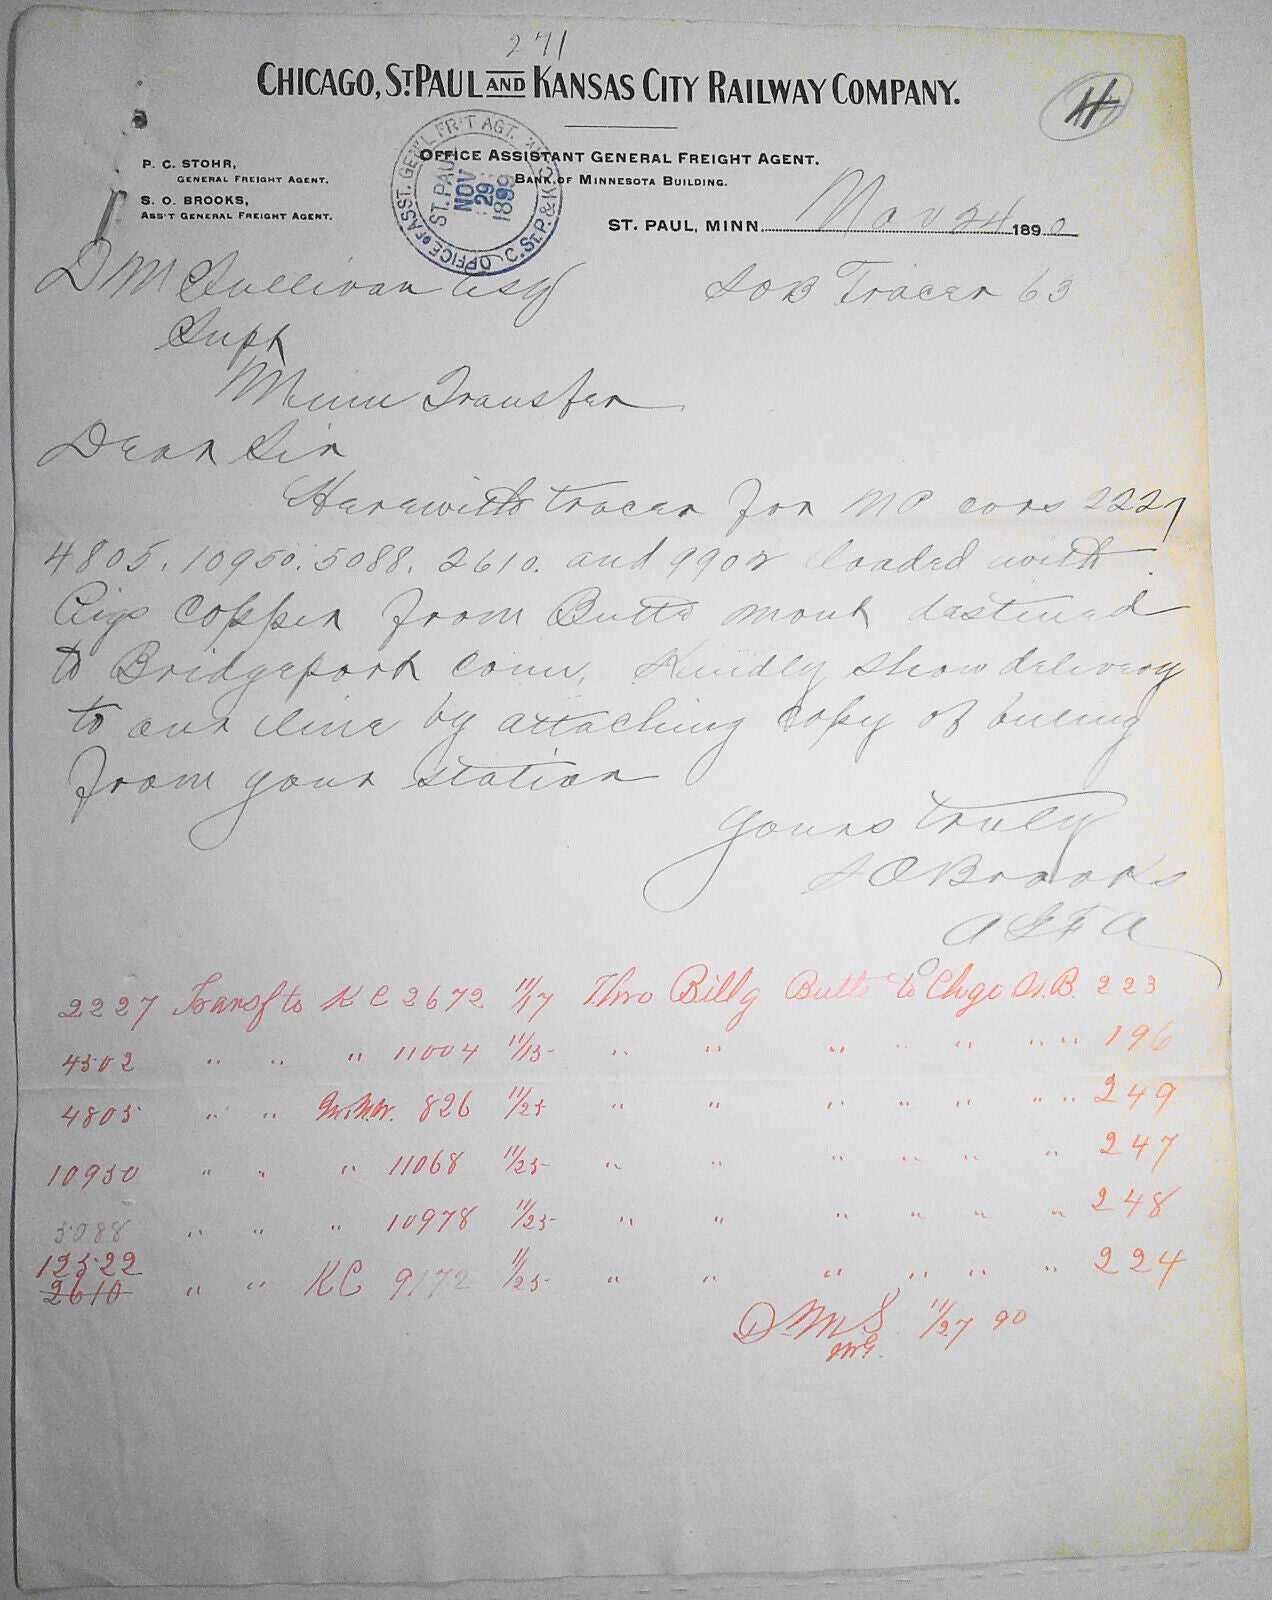 271
CHICAGO, ST. PAUL AND KANSAS CITY RAILWAY COMPANY.
H
OFFICE ASSISTANT GENERAL FREIGHT AGENT.
BANK OF MINNESOTA BUILDING.
P. C. STOHR,
GENERAL FREIGHT AGENT.
S. O. BROOKS,
ASS'T GENERAL FREIGHT AGENT.
OFFICE OF ASST. GEN'L FR'T AGT. C. ST. P. & K. C. RY
ST. PAUL
NOV
29
ST. PAUL, MINN. Nov 24 1890
D M Sullivan Esq
SOB Tracer 63
Supt
Minn Transfer
Dear Sir
Herewith tracer for NP cars 2227
4805. 10950. 5088. 2610. and 9902 loaded with
Pigs copper from Butte mont destined
to Bridgeport Conn. Kindly show delivery
to our line by attaching copy of billing
from your station
Yours truly
S O Brooks
A G F A
2227 Transf to K C 2672 11/17 Thro Billg Butte to Chgo W.B. 223
4502 " " " 11004 11/15 " " " " " " " 196
4805 " " 826 11/25 " " " " " " " 249
10950 " " " 11068 11/25 " " " " " " 247
5088 " " " 10978 11/25 " " " " " " 248
12522
2610 " " KC 9172 11/25 " " " " " " 224
D M S 11/27 90